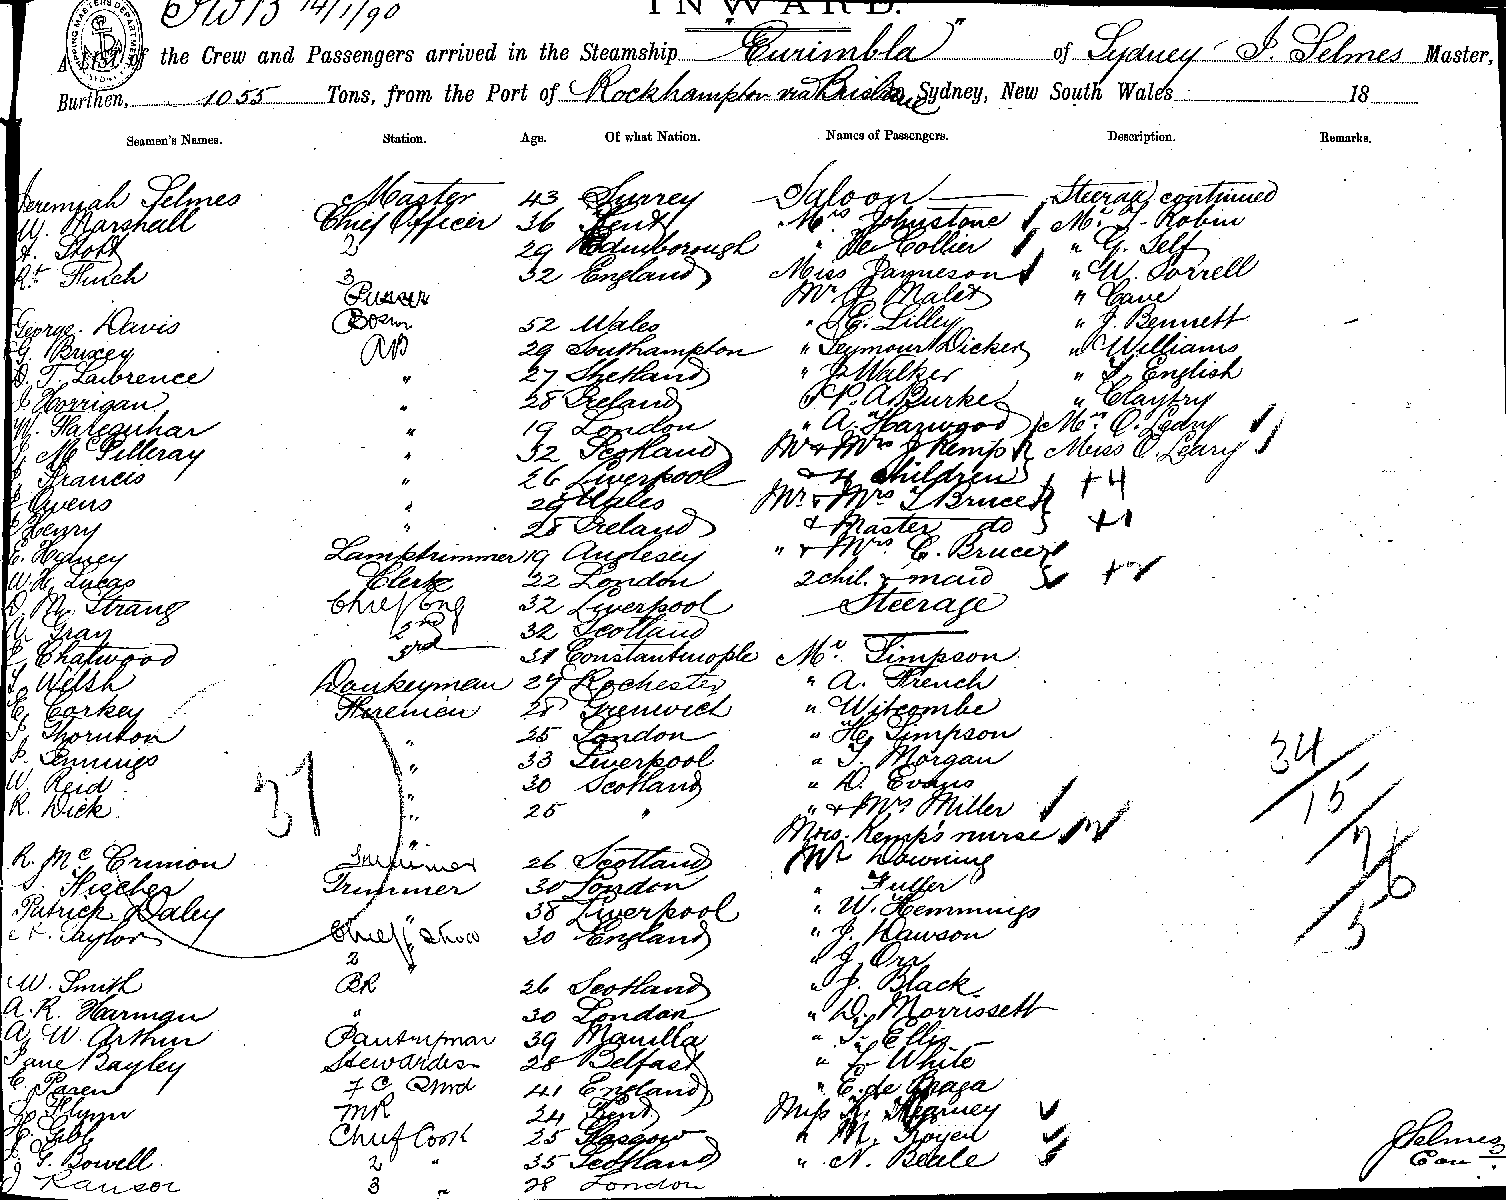 14/1/90
INWARD.
A List of the Crew and Passengers arrived in the Steamship "Eurimbla" of Sydney J. Selmes Master,
Burthen, 1055 Tons, from the Port of Rockhampton via Brisbane Sydney, New South Wales 18
Seamen's Names. Station. Age. Of what Nation. Names of Passengers. Description. Remarks.
Jeremiah Selmes Master 43 Surrey Saloon Steerage continued
W. Marshall Chief Officer 36 Kent Mrs Johnstone Mr J. Robin
A. Stott 2 29 Edinborough " De Collier " G. Self
Rt Finch 3 32 England Miss Jayneson " W. Sorrell
Purser Mr Malet " Cane
George Davis Bosn 52 Wales " E. Lilley " J. Bennett
G. Bruxey AB 29 Southampton " Seymour Dicken " Williams
D. T. Lawrence " 27 Shetland " J. Walker " English
J. Horrigan " 28 Ireland P. A. Burke "
W. Farquhar " 19 London " A. Harwood Mrs O. Leary
Mc Gilleray " 32 Scotland Mr & Mrs J Kemp Miss O. Leary
Francis " 26 Liverpool & 4 Children +4
Owens " 29 Wales Mr & Mrs Bruce
Henry " 28 Ireland & Master do +1
E. Lamptrimmer 19 Anglesey " & Mrs C. Bruce
W. H. Lucas Clerk 22 London 2 chil. & maid
D. M. Strang Chief Eng 32 Liverpool Steerage
Gray 2nd 32 Scotland
Chatwood 3rd 31 Constantinople Mr. Simpson
Welsh Donkeyman 27 Rochester " A. French
Corkey Firemen 28 Greenwich " Witcombe
Thornton " 25 London " H. Simpson
Jennings " 33 Liverpool " T. Morgan 34
W. Reid " 30 Scotland " D. Evans
R. Dick " 25 " " & Mrs Miller 15
37
Mrs. Kemp's nurse
R. Mc Crimion 26 Scotland Mr Downing
Fischer Trimmer 30 London " Fuller
Patrick Daley " 38 Liverpool " W. Hemmings
Taylor Chief Stwd 30 England " J. Dawson 5
2 " " J. Orr
W. Smith BR 26 Scotland " J. Black
A. R. Harman " 30 London " D. Morrissett
A. W. Arthur Pantryman 39 Manilla " Ellis
Jane Bayley Stewardess 28 Belfast " White
41 England " E. de Braga
Flynn MR 24 Kent Miss Kearney
Gibb Chief Cook 25 Glasgow " M. Royen
G. Bowell 2 " 35 Scotland " N. Beale
3 " 28 London
J Selmes